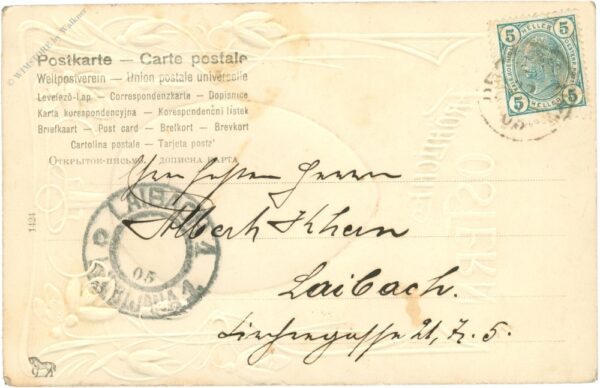 © WIMSTORE by Walkner
Postkarte — Carte postale
Weltpostverein — Union postale universelle
Levelező-Lap — Correspondenzkarte — Dopisnice
Karta korespondencyjna — Korespondenční lístek
Briefkaart — Post card — Brefkort — Brevkort
Cartolina postale — Tarjeta postal
Открытое-письмо дописна карта
5 5
HELLER
5 5
HELLER
Herrn
Albert Khern
Laibach.
21, Z. 5.
LAIBACH 1
05
LJUBLJANA 1
1424
FRÖHLICHE
OSTERN